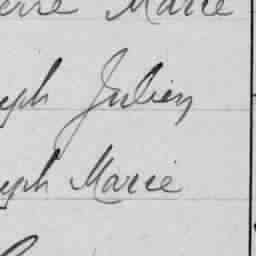 erre Marie
eph Julien
eph Marie